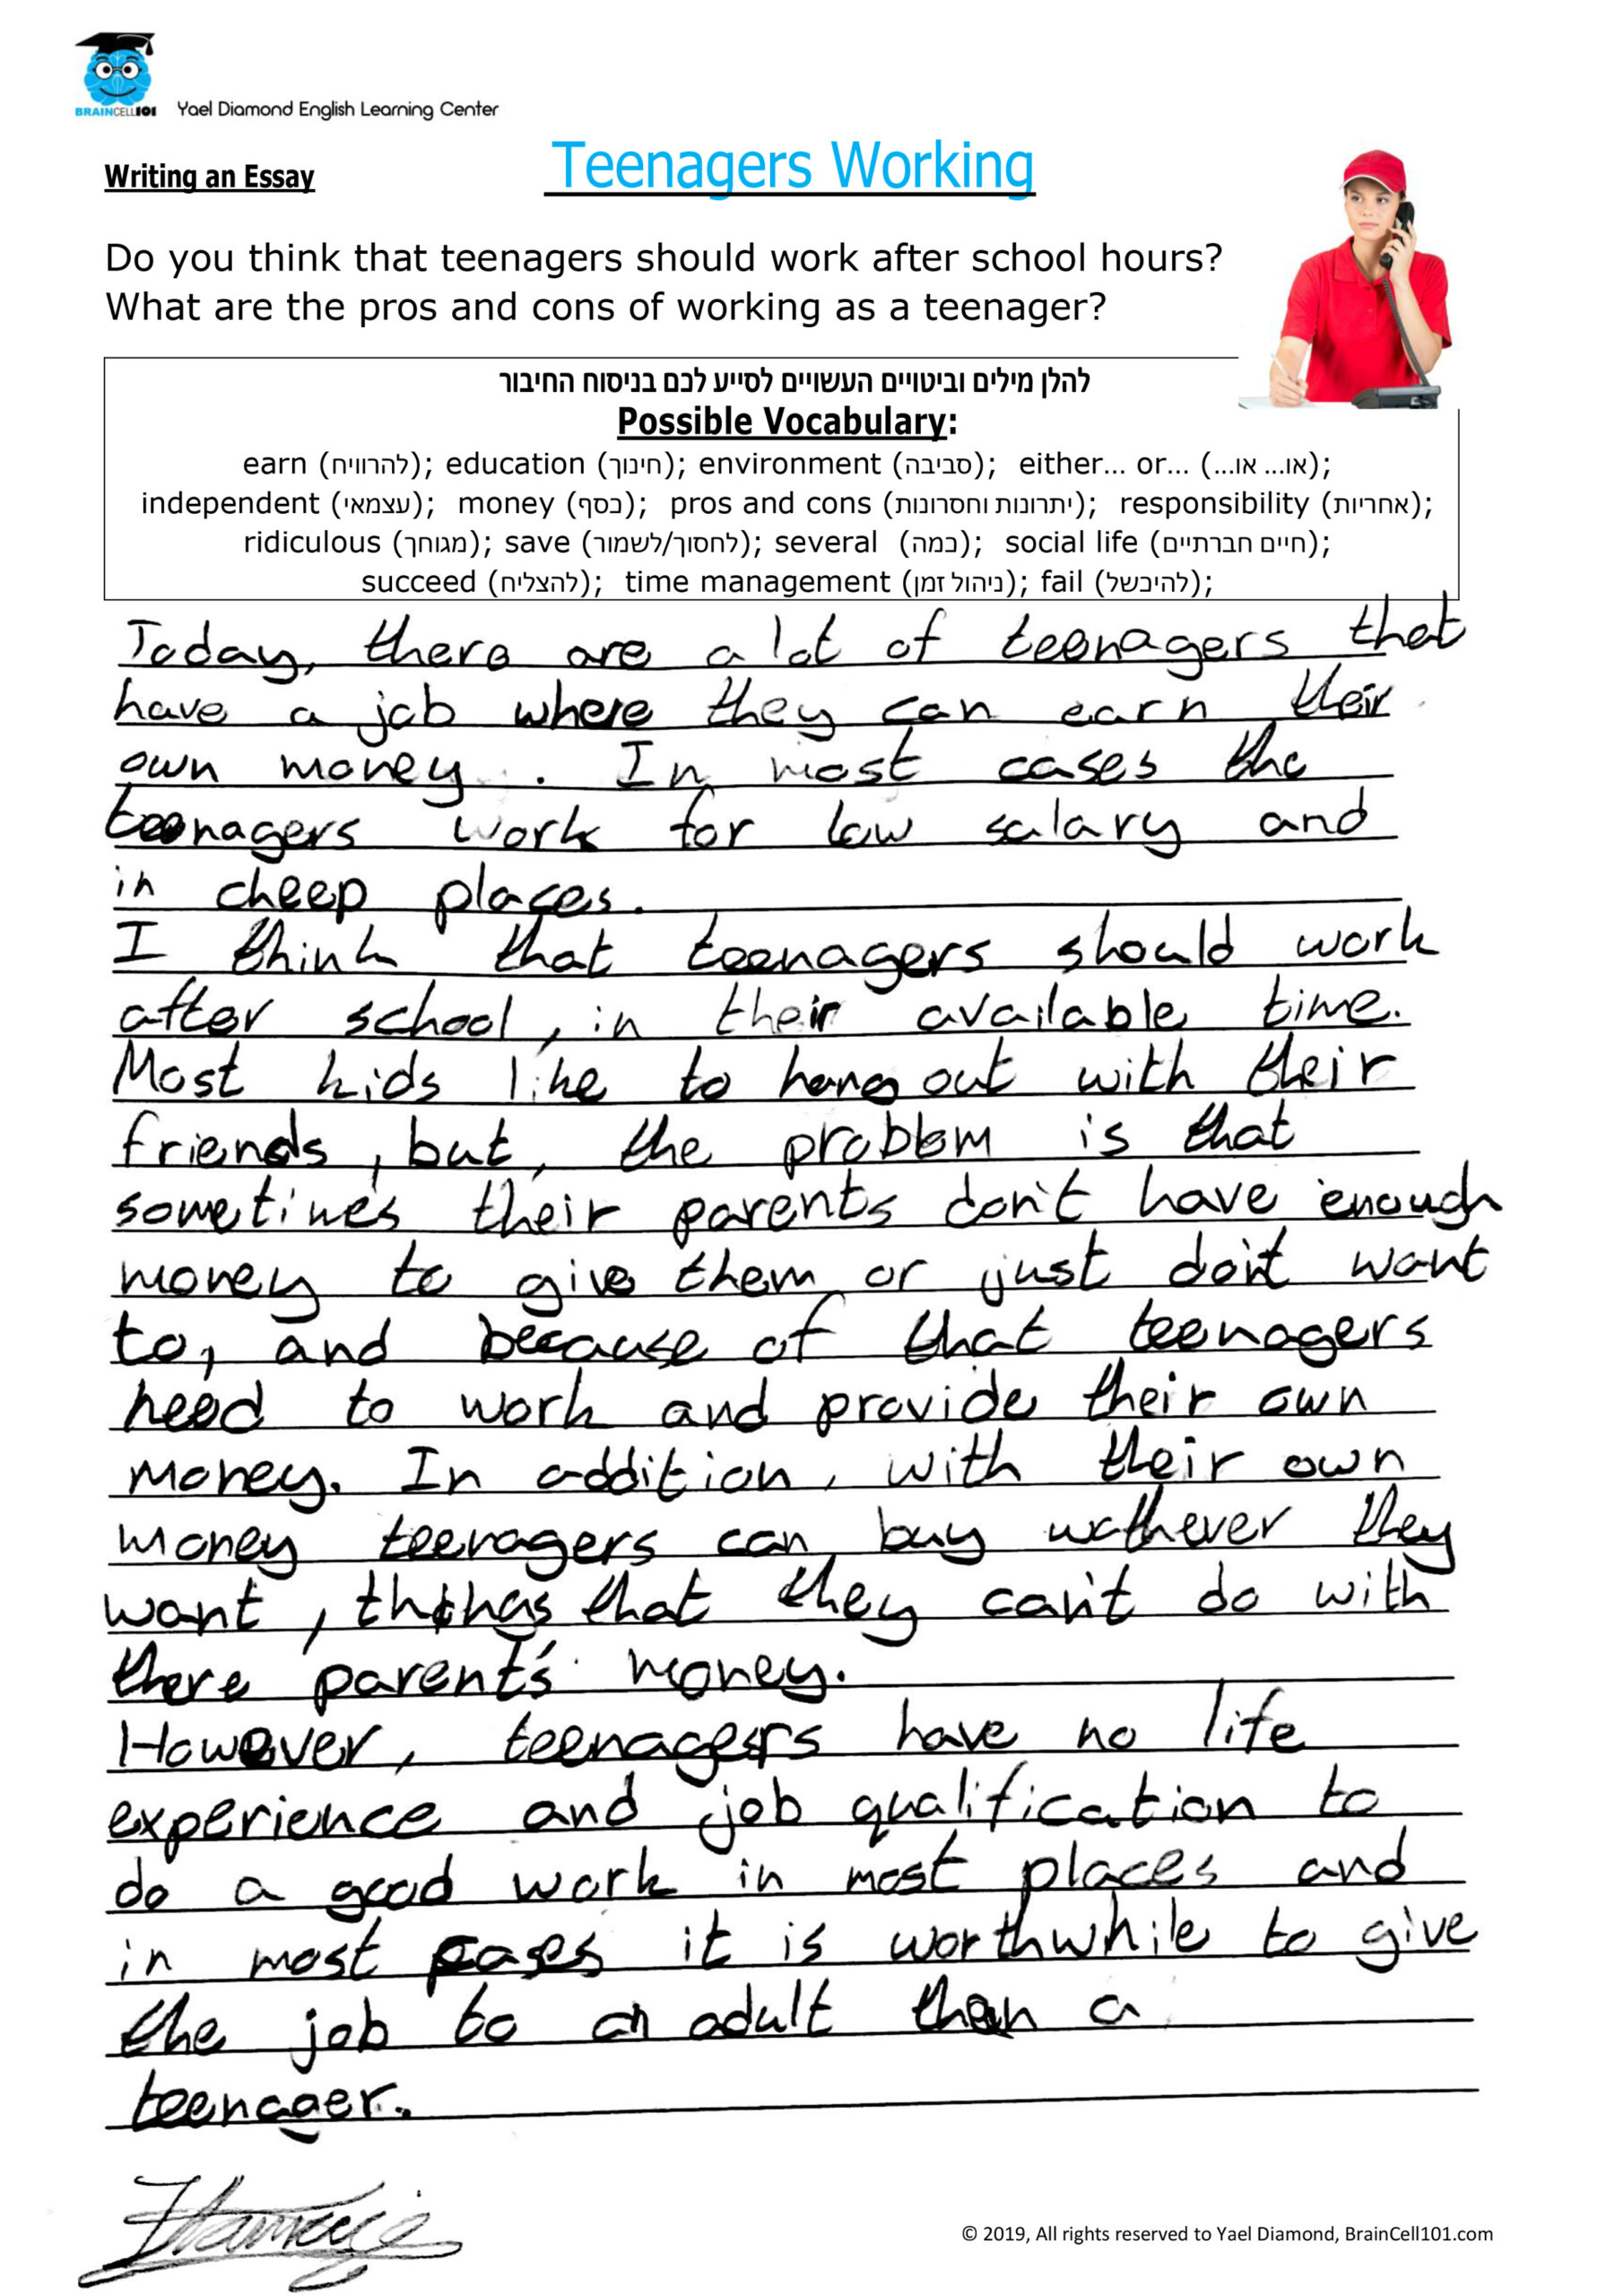 BRAINCELL101 Yael Diamond English Learning Center
Writing an Essay
Teenagers Working
Do you think that teenagers should work after school hours?
What are the pros and cons of working as a teenager?
להלן מילים וביטויים העשויים לסייע לכם בניסוח החיבור
Possible Vocabulary:
earn (להרוויח); education (חינוך); environment (סביבה); either... or... (או... או...);
independent (עצמאי); money (כסף); pros and cons (יתרונות וחסרונות); responsibility (אחריות);
ridiculous (מגוחך); save (לחסוך/לשמור); several (כמה); social life (חיים חברתיים);
succeed (להצליח); time management (ניהול זמן); fail (להיכשל);
Today, there are a lot of teenagers that
have a job where they can earn their
own money. In most cases the
teenagers work for low salary and
in cheep places.
I think that teenagers should work
after school, in their available time.
Most kids like to hang out with their
friends, but, the problem is that
sometimes their parents don't have enough
money to give them or just don't want
to, and because of that teenagers
need to work and provide their own
money. In addition, with their own
money teenagers can buy wathever they
want, things that they can't do with
there parent's money.
However, teenagers have no life
experience and job qualification to
do a good work in most places and
in most cases it is worthwhile to give
the job to an adult than a
teenager.
© 2019, All rights reserved to Yael Diamond, BrainCell101.com